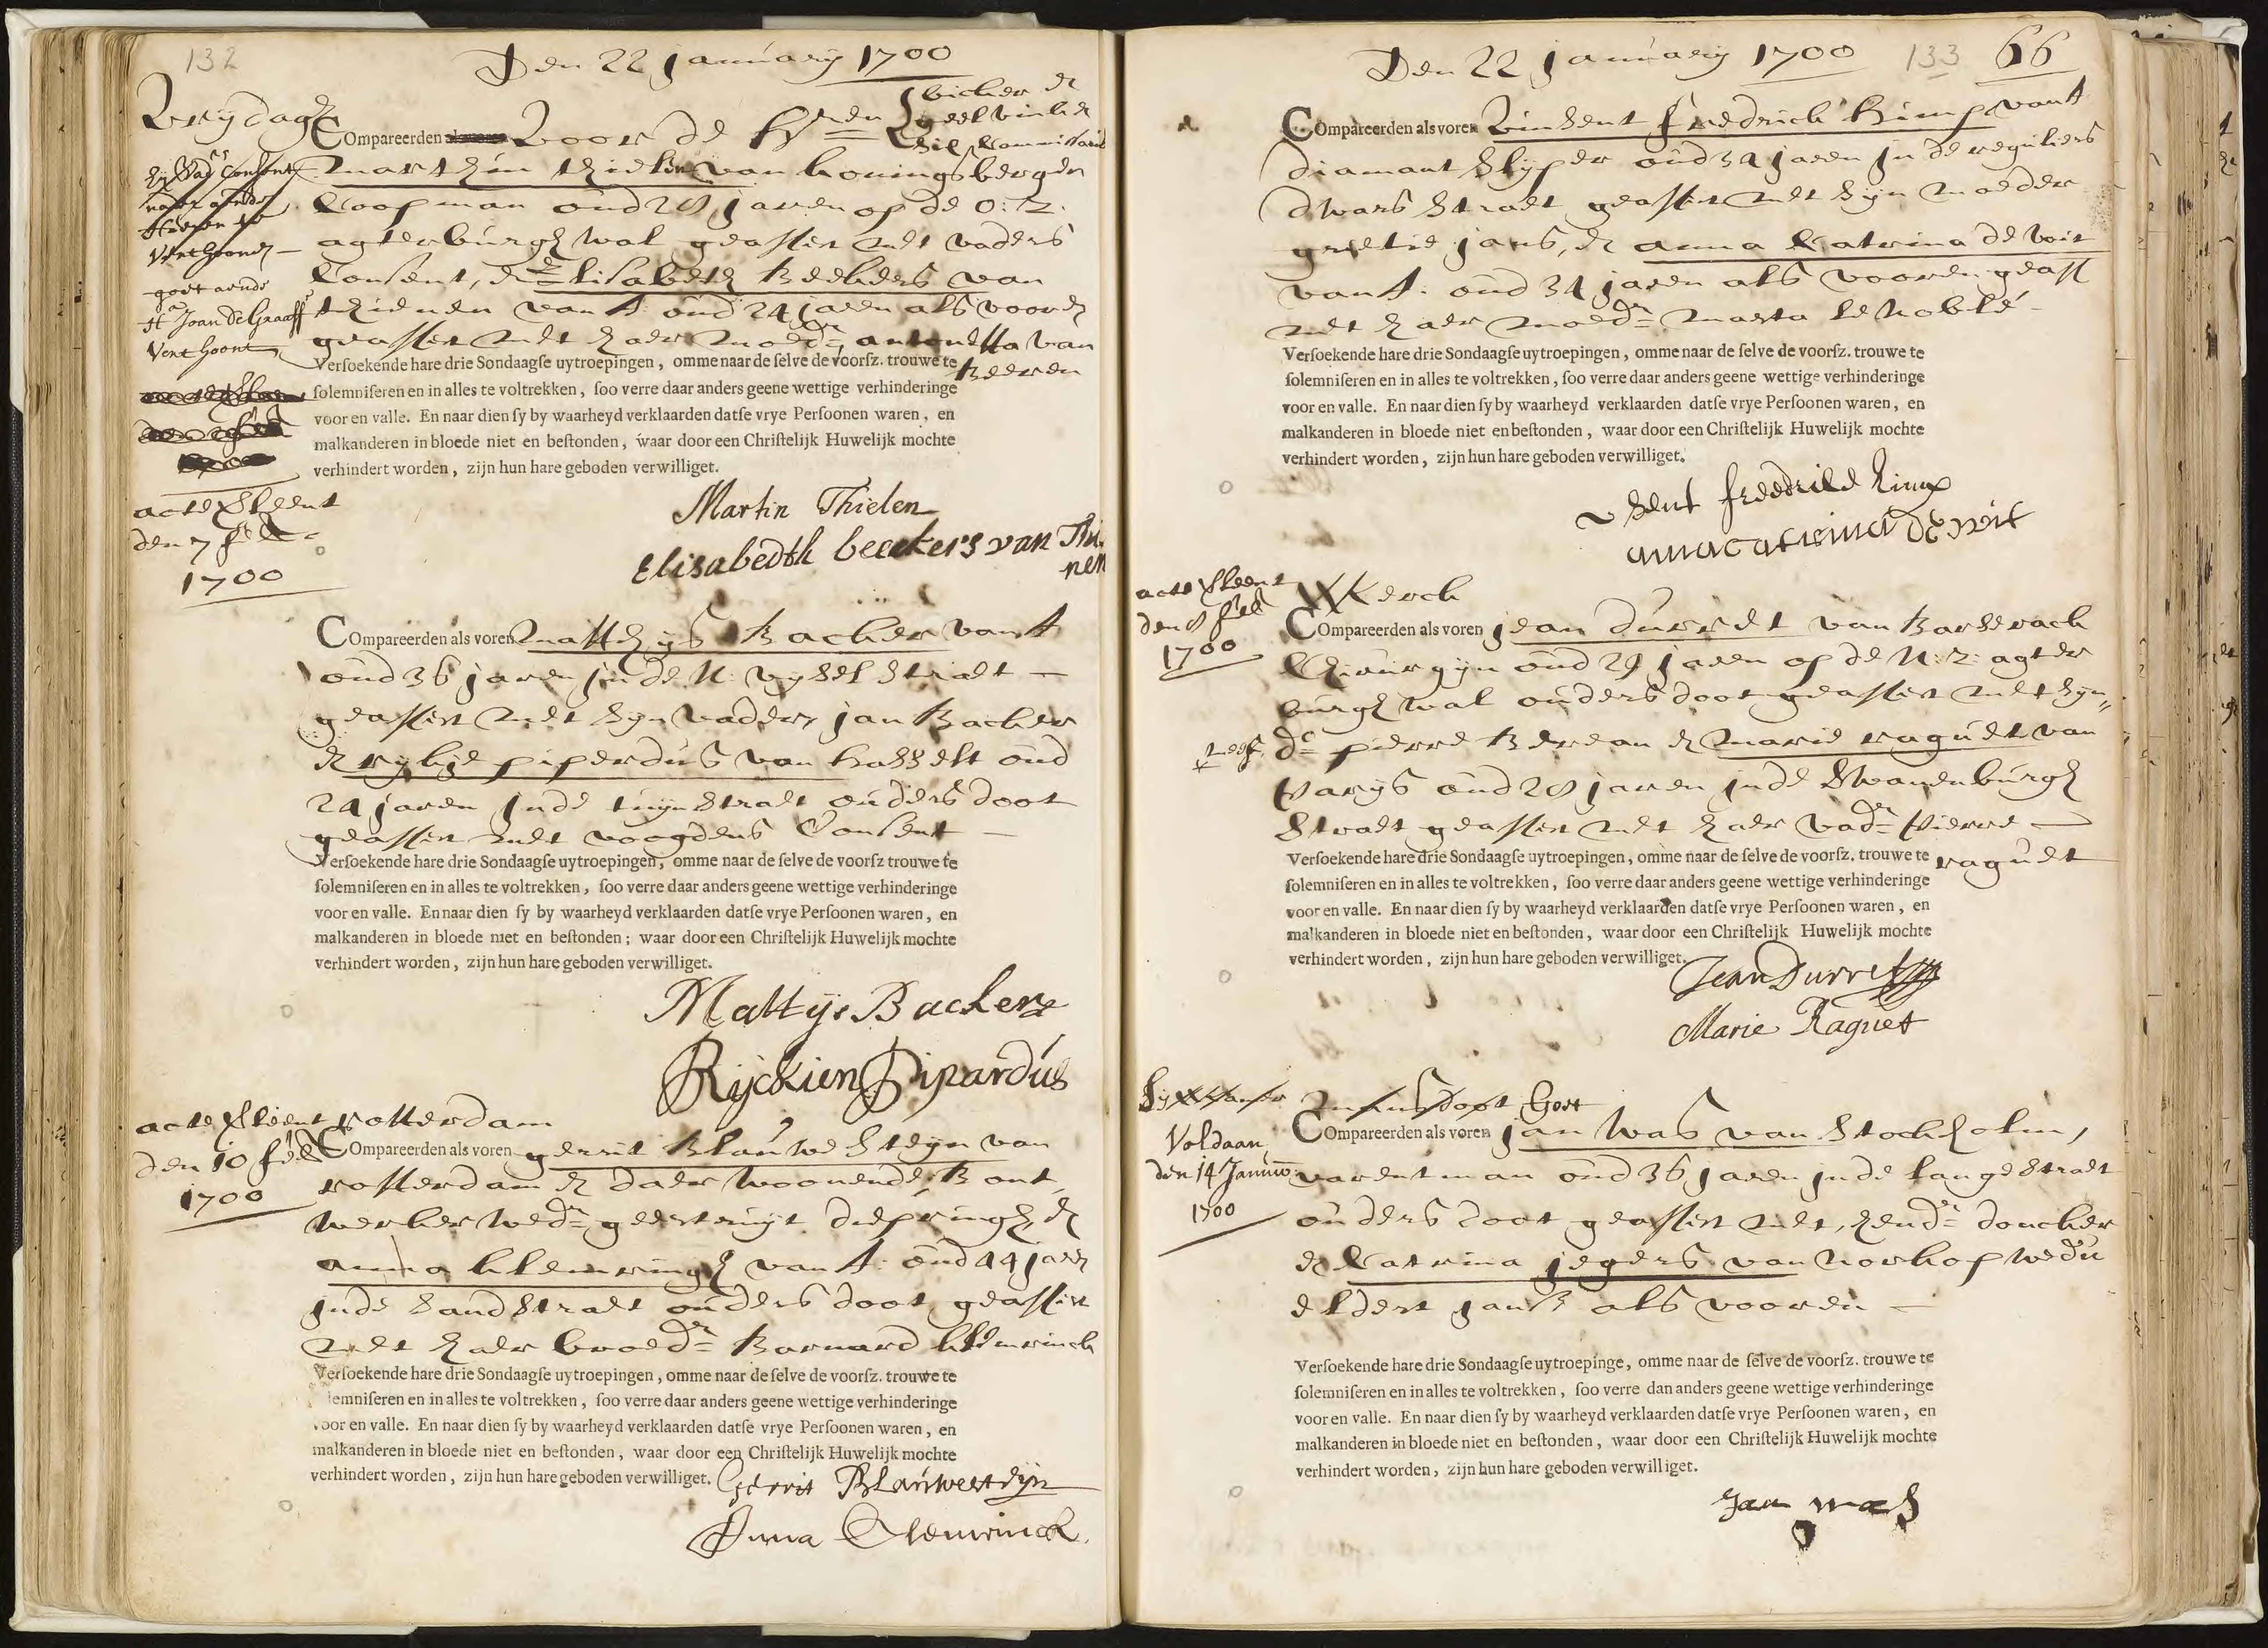 132
Den 22 january 1700
Vrydagh
Compareerden voor de Hren bicker en
geelvinck en
Commissaris
Marthin thielen van koningsbergen
Coopman oud 28 jaren op de O: Z:
agterburghwal geassist met vaders
Consent, en Elisabeth beeckers van
thienen van A oud 24 jaren als vooren
geassist met haer moeder antonetta van
beeren
Verſoekende hare drie Sondaagſe uytroepingen, omme naar de ſelve de voorſz. trouwe te
ſolemniſeren en in alles te voltrekken, ſoo verre daar anders geene wettige verhinderinge
voor en valle. En naar dien ſy by waarheyd verklaarden datſe vrye Perſoonen waren, en
malkanderen in bloede niet en beſtonden, waar door een Chriſtelijk Huwelijk mochte
verhindert worden, zijn hun hare geboden verwilliget.
Consent
Verthoonen
goet aende
Hr Joan De Graaff
Verthoont
acte verleent
den 7 feb
1700
Martin Thielen
Elisabedth beeckers van Thi
nen
Compareerden als voren Matthys Backer van A
oud 36 jaren in de N: vyselstraet
geassist met syn vader jan Backer
en rykje piperdus van hasselt oud
24 jaren in de tuynstraet ouders doot
geassist met voogdens Consent
Verſoekende hare drie Sondaagſe uytroepingen, omme naar de ſelve de voorſz trouwe te
ſolemniſeren en in alles te voltrekken, ſoo verre daar anders geene wettige verhinderinge
voor en valle. En naar dien ſy by waarheyd verklaarden datſe vrye Perſoonen waren, en
malkanderen in bloede niet en beſtonden; waar door een Chriſtelijk Huwelijk mochte
verhindert worden, zijn hun hare geboden verwilliget.
Mattijs Backer
Rijckien Pipardús
acte verleent rotterdam
den 10 feb
1700
Compareerden als voren gerrit Blauwesteyn van
rotterdam en daer woonende, bont
werker wedr geertruyt diepringh, en
anna klemringh van A: oud 44 jaren
in de Sandstraet ouders doot geassist
met haer broedr Barnard klemrinck
Verſoekende hare drie Sondaagſe uytroepingen, omme naar de ſelve de voorſz. trouwe te
ſolemniſeren en in alles te voltrekken, ſoo verre daar anders geene wettige verhinderinge
voor en valle. En naar dien ſy by waarheyd verklaarden datſe vrye Perſoonen waren, en
malkanderen in bloede niet en beſtonden, waar door een Chriſtelijk Huwelijk mochte
verhindert worden, zijn hun hare geboden verwilliget.
Gerrit Blauwesteijn
Anna Clemrinck
Den 22 january 1700 133 66
Compareerden als voren Vinsent fredrick kimp van A
diamantslyper oud 34 jaren in de reguliers
dwarsstraet geassist met syn moeder
grietie jans, en anna Catrina de voit
van A. oud 34 jaren als vooren geass
met haer moedr marta le noble
Verſoekende hare drie Sondaagſe uytroepingen, omme naar de ſelve de voorſz. trouwe te
ſolemniſeren en in alles te voltrekken, ſoo verre daar anders geene wettige verhinderinge
voor en valle. En naar dien ſy by waarheyd verklaarden datſe vrye Perſoonen waren, en
malkanderen in bloede niet en beſtonden, waar door een Chriſtelijk Huwelijk mochte
verhindert worden, zijn hun hare geboden verwilliget.
anna catrina de voit
acte verleent
den 8 feb
1700
W kerck
Compareerden als voren jean durret van
Chirurgyn oud 29 jaren op de N: Z: agter
burghwal ouders doot geassist met syn
pierre Berean en marie raguet van
Parys oud 28 jaren in de Swanenburgh
straet geassist met haer vadr Pierre
raguet
Verſoekende hare drie Sondaagſe uytroepingen, omme naar de ſelve de voorſz. trouwe te
ſolemniſeren en in alles te voltrekken, ſoo verre daar anders geene wettige verhinderinge
voor en valle. En naar dien ſy by waarheyd verklaarden datſe vrye Perſoonen waren, en
malkanderen in bloede niet en beſtonden, waar door een Chriſtelijk Huwelijk mochte
verhindert worden, zijn hun hare geboden verwilliget.
Jean Durret
Marie Raguet
Voldaan
den 14 Januw
1700
Compareerden als voren jan was van Stockholm,
varentman oud 36 jaren in de langestraet
ouders doot geassist met, hendr doncker
en Catrina jegers van norkop wedu
eldert jansz als vooren
Verſoekende hare drie Sondaagſe uytroepinge, omme naar de ſelve de voorſz. trouwe te
ſolemniſeren en in alles te voltrekken, ſoo verre dan anders geene wettige verhinderinge
voor en valle. En naar dien ſy by waarheyd verklaarden datſe vrye Perſoonen waren, en
malkanderen in bloede niet en beſtonden, waar door een Chriſtelijk Huwelijk mochte
verhindert worden, zijn hun hare geboden verwilliget.
Jan was